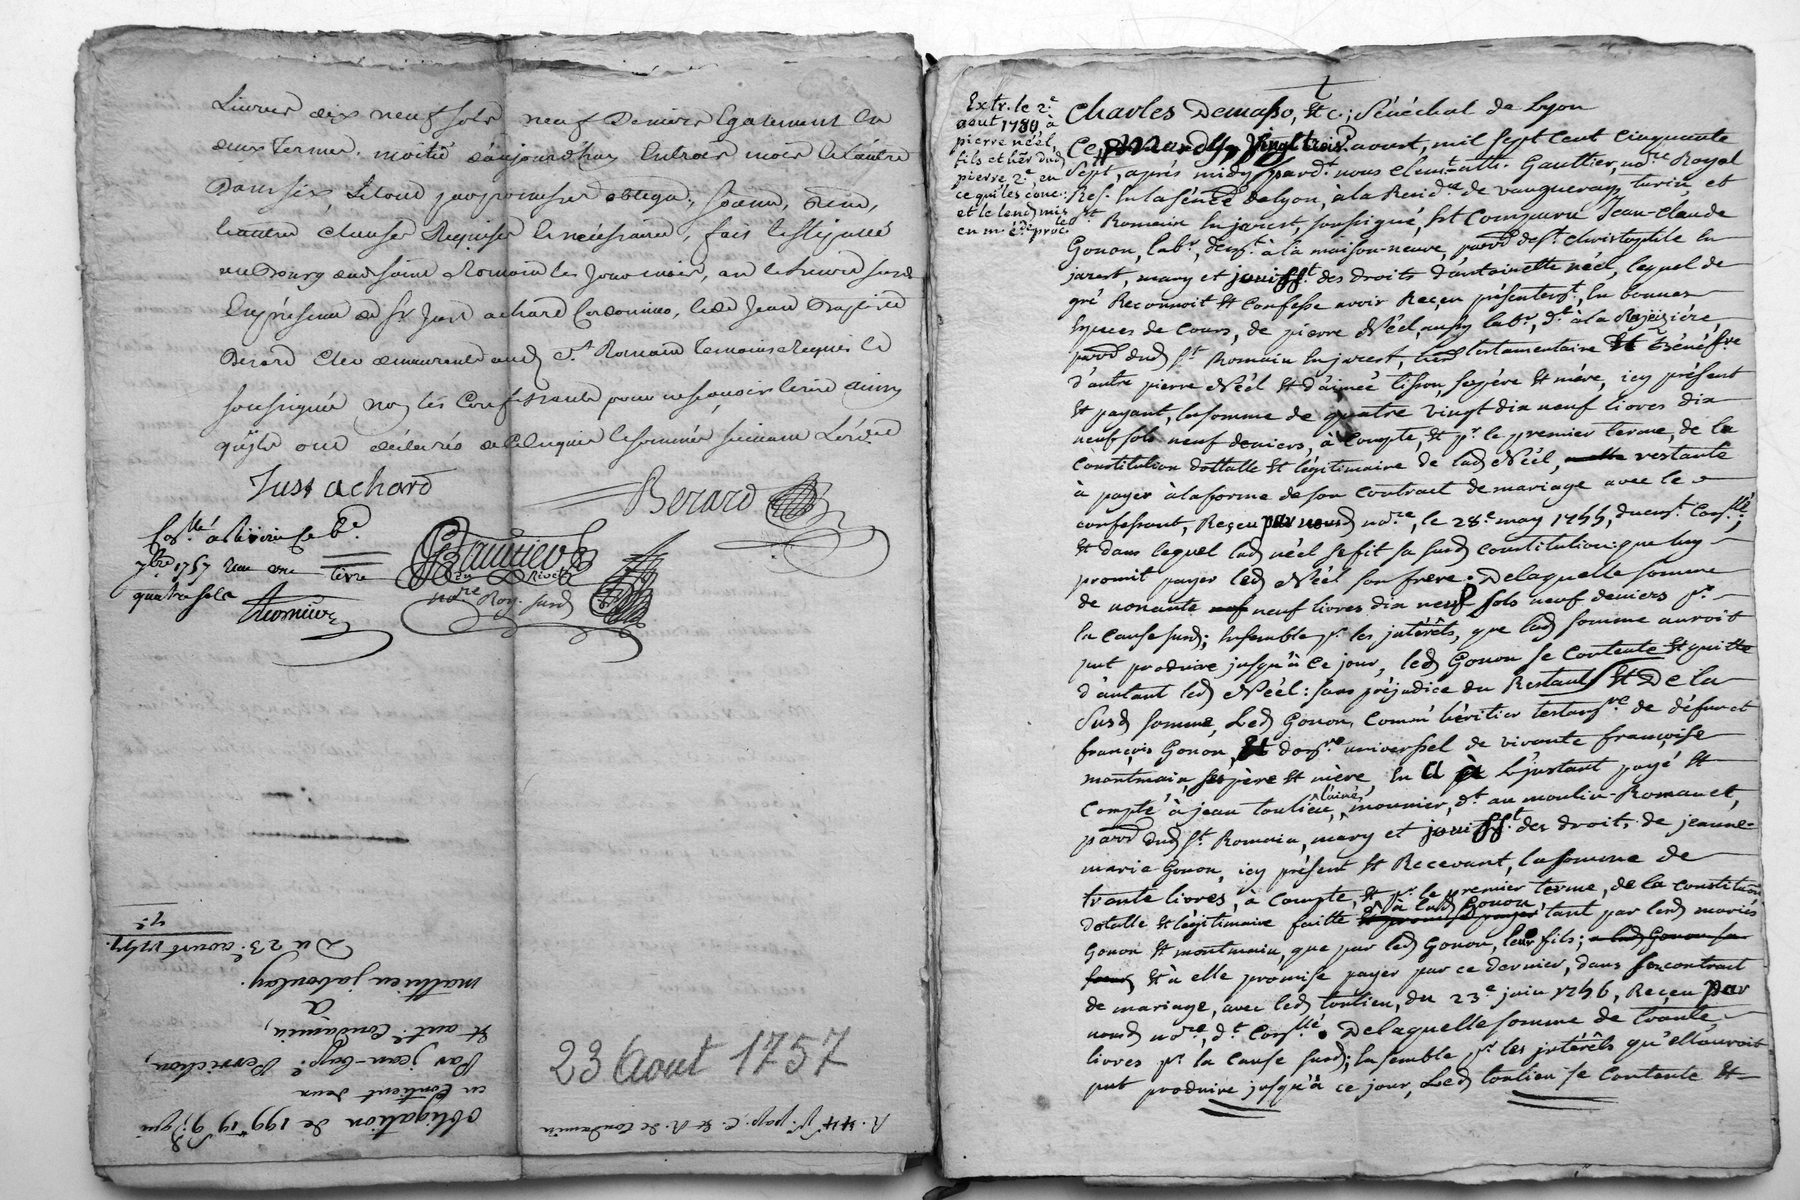 Livres dix neuf sols neuf deniers Egalement en
deux Termes. moitié d'aujourd'huy En trois mois et l'autre
Dans six, Et tout par promesse obligaon, Soum, Renon,
Et autres clauses Requises Et nécessaires, fait Et passé
au Bourg dud saint Romain les Jour mois, an et heure susd
En présence de Sr Just achard Cordonnier, et de Jean Baptiste
Berard Clerc demeurants aud St Romain Temoins Requis Et
soussignés non les Confessants pour ne sçavoir Ecrire ainsy
qu'ils ont déclarés de ce Enquis Et sommés suivant L'ordce
Just achard
Berard
Gaultier
notre Roy. susd
Conllé à Rivedegier Le 1er
7bre 1757 Reçu une livre
quatre sols
Du 23e. aoust 1757.
mathieu jaboulay.
à
Et ant. Condamin,
Par jean-bapte. Perrichon,
obligation de 199l 19s 9d
23 Aout 1757
Extr. le 2e.
aout 1780, à
pierre néel,
fils et hér dud
pierre 2e. en
ce qui les conc:
et le lend mis
en m. ède proc.
Charles Demasso, Etc; Sénéchal de Lyon
Ce, mardy, Vingt trois aoust, mil sept cent cinquante
Sept, après midy, pardt. nous Clemt. Gaultier, nore Royal
Res. En la Sénéée de Lyon, à la Residce de vaugneray, turin, et
St. Romain En jarest, soussigné, Est Comparu Jean-Claude
Gonon, labr, demt à la maison-neuve, parroe de St. Christophle En
jarest, mary et jouisst des droits d'antoinette néel, lequel de
gré Reconnoit Et Confesse avoir Reçeu présentemt, En bonnes
Espèces de Cours, de pierre Néel, aussy labr, dt. à la
parroe dud St. Romain En jarest, hér testamentaire
d'autre pierre Néel Et d'aimée tisson, ses père Et mère, icy présent
Et payant, la somme de quatre Vingt dix neuf livres dix
neuf sols neuf deniers, à Compte, Et pr. le premier terme, de la
Constitution dottalle Et légitimaire de lad Néel, restante
à payer à la forme de son Contract de mariage avec le
confessant, Reçeu par nousd nore, le 28e may 1755, duemt. Conllé,
Et dans lequel lad néel se fit sa susd constitution que luy
promit payer led Néel son frère. De laquelle somme
de nonante neuf livres dix neuf sols neuf deniers pr.
la cause susd; Ensemble pr. les intérêts, que lad somme auroit
put produire jusqu'à ce jour, led Gonon se contente Et quitte
d'autant led Néel: sans préjudice du Restant Et De la
Susd somme, Led Gonon, Comm' héritier testamre de défunt
françois Gonon, Et donre universel de vivante françoise
montmain, ses père Et mère, En a à L'instant payé Et
Compté à jean toulieu, l'ainé, mounier, dt. au moulin-Romanet,
parroe dud St. Romain, mary et jouisst des droits de jeanne-
marie Gonon, icy présent Et Recevant, la somme de
trante livres, à Compte, Et pr. le premier terme, de la constituon
dotalle Et légitimaire faitte à lad Gonon tant par lesd mariés
Gonon Et montmain, que par led Gonon, leur fils;
Et à elle promise payer par ce dernier, dans son contract
de mariage, avec led toulieu, du 23e juin 1746, Reçeu par
nousd nore, dt. Conllé. De laquelle somme de trante
livres pr. la cause susd; Ensemble pr. les intérêts qu'ell'auroit
put produire jusqu'à ce jour, Led toulieu se contente Et